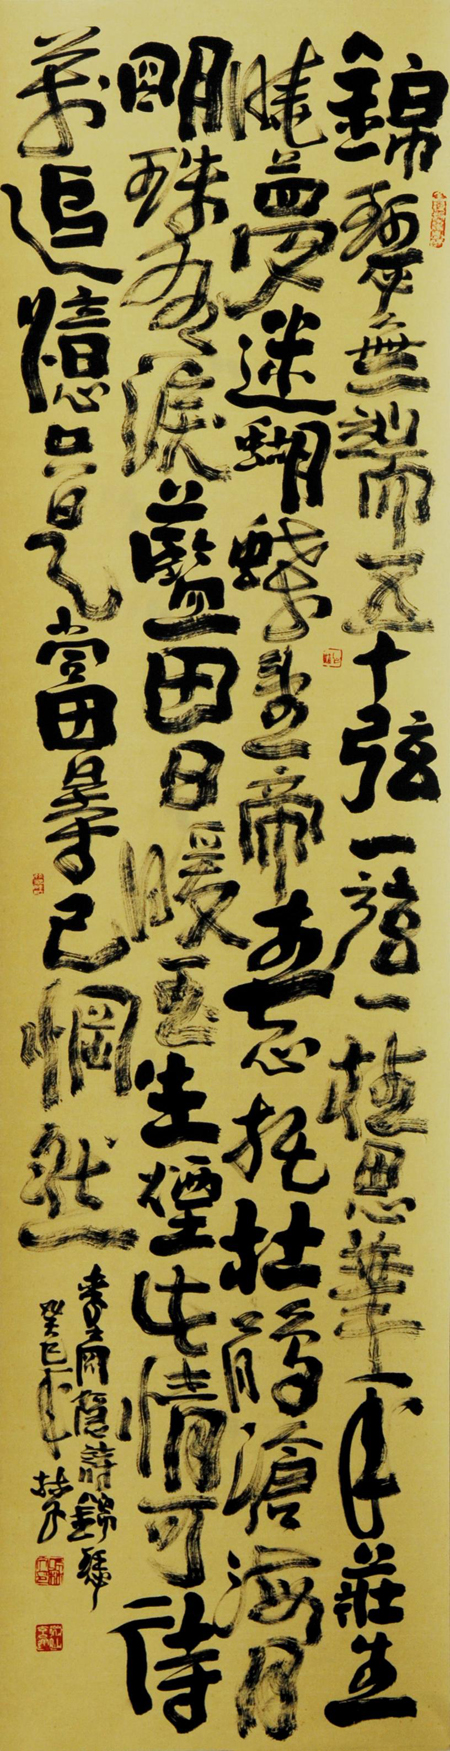 錦瑟無端五十弦一弦一柱思華年莊生
曉夢迷蝴蝶望帝春心托杜鵑滄海月
明珠有淚藍田日暖玉生煙此情可待
成追憶只是當時已惘然
李商隱詩錦瑟
癸巳年